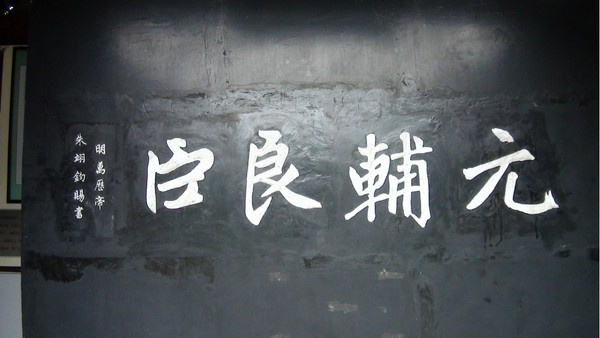 元輔良臣
明萬歷帝
朱翊鈞賜書